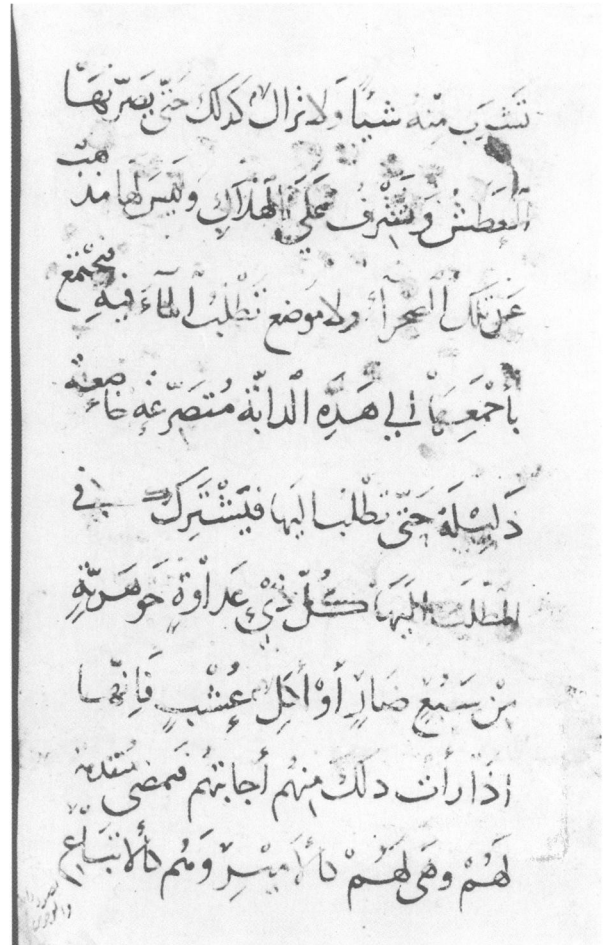 تشرب منه شيئا ولا تزال كذلك حتى يضر بها
العطش وتشرف على الهلاك وليس لها مذهب
عن تلك الصحرآء ولا موضع تطلب المآء فيه فيجتمع
بأجمعها الى هذه الدابة متضرعة خاضعة
ذليلة حتى تطلب اليها فيشترك في
المطلب اليها كل ذي عداوة جوهرية
من سبع ضار أو آكل عشب فانها
اذا رأت ذلك منهم أجابتهم فمضى
لهم وهى لهم كالأمير وهم كالاتباع